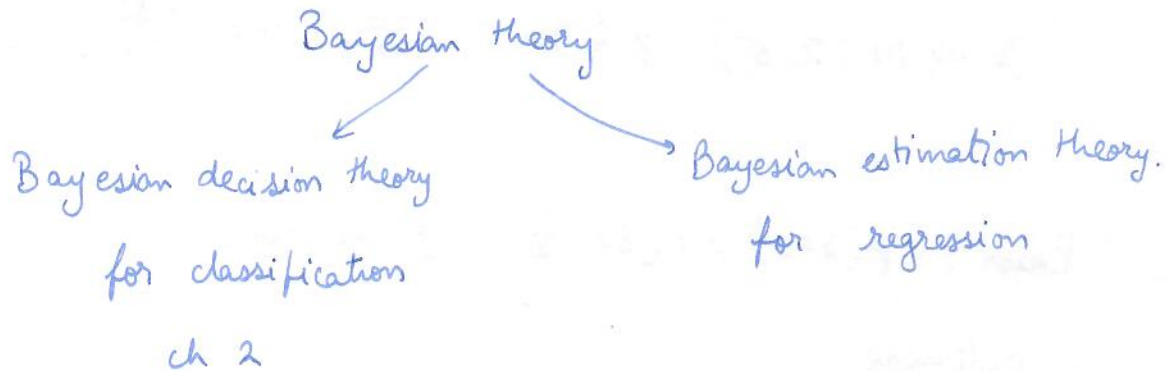 Bayesian theory
Bayesian decision theory
for classification
ch 2
Bayesian estimation theory.
for regression